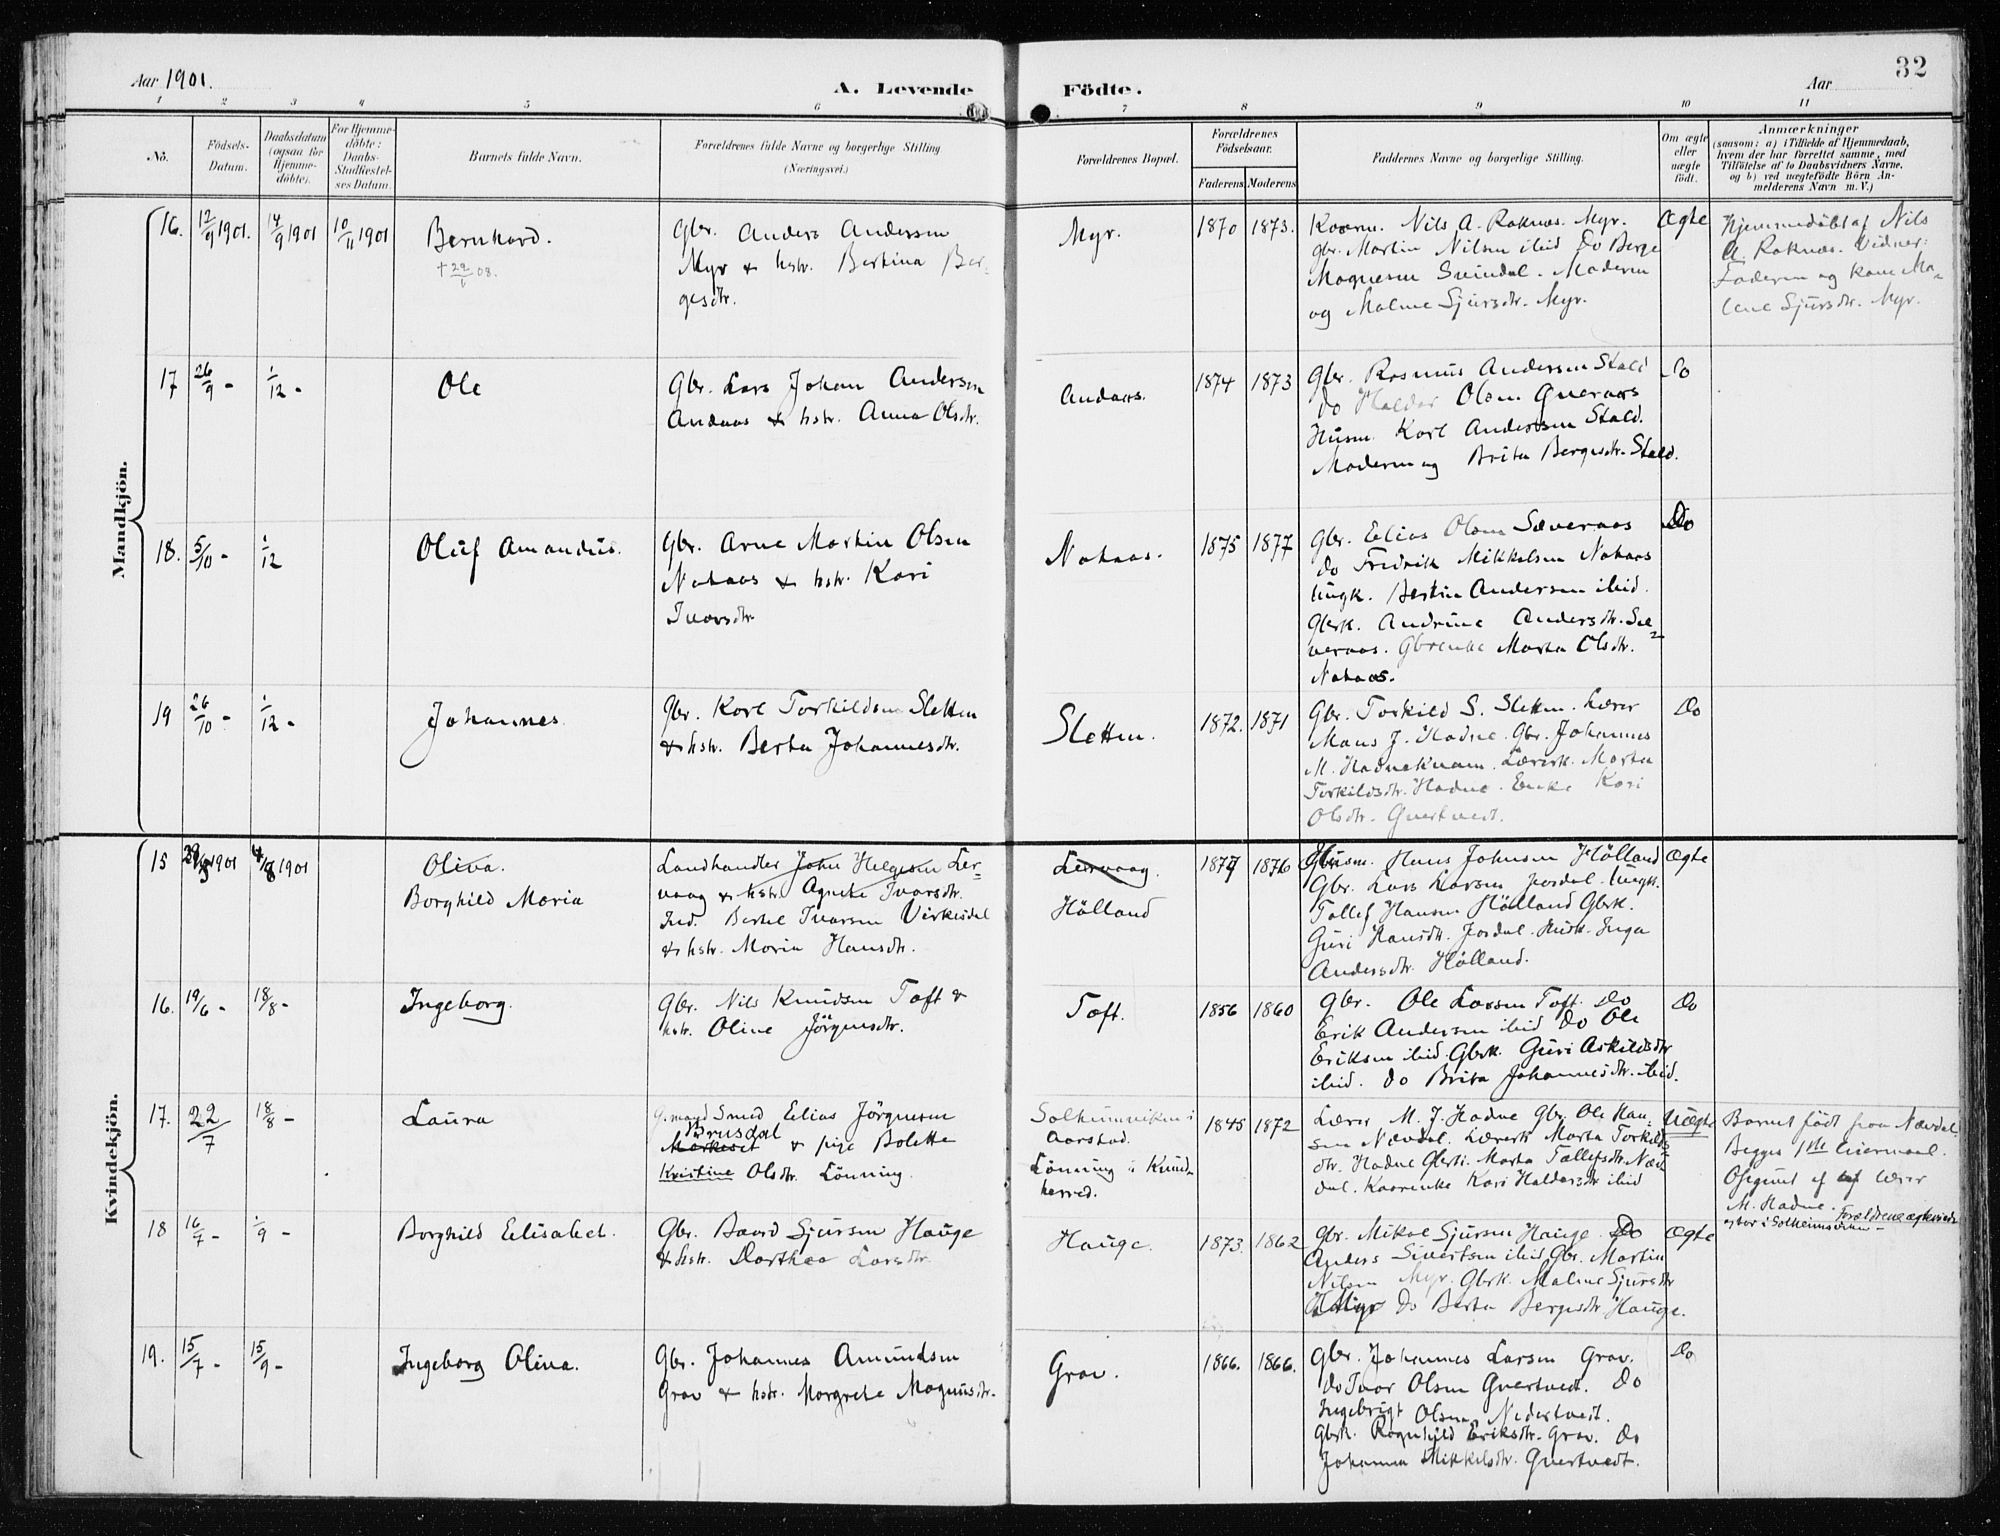 Aar 1901.
A. Levende
Födte.
Aar
32
1 2 3 4 5 6 7 8 9 10 11
No.
Födsels-
Datum.
Daabsdatum
(ogsaa for
Hjemme-
döbte).
For Hjemme-
döbte:
Daabs-
Stadfæstel-
ses Datum.
Barnets fulde Navn.
Forældrenes fulde Navne og borgerlige Stilling
(Næringsvei.)
Forældrenes Bopæl.
Forældrenes
Födselsaar.
Faderens Moderens
Faddernes Navne og borgerlige Stilling.
Om ægte
eller
uægte
født.
Anmærkninger
(saasom: a) i Tilfælde af Hjemmedaab,
hvem der har forrettet samme, med
Tilföielse af to Daabsvidners Navne,
og b) ved uægtefödte Börn An-
melderens Navn m. V.)
Mandkjön.
16. 12/9 1901. 14/9 1901 10/11 1901
Bernhard.
† 29/6 08.
Gbr. Anders Andersen
Myr & hstr. Bertina Ber-
gesdtr.
Myr.
1870 1873.
Kaarm. Nils A. Raknæs. Myr.
gbr. Martin Nilsen ibid Do Berge
Magnesen Svindal. Moderen
og Malene Sjursdtr. Myr.
Ægte
Hjemmedöbt af Nils
A. Raknæs. Vidner:
Faderen og kone Ma-
lene Sjursdtr. Myr.
17 26/9 - 1/12 -
Ole
Gbr. Lars Johan Andersen
Andaas & hstr. Anna Olsdtr.
Andaas.
1874 1873
Gbr. Rasmus Andersen Stald
Do Haldor Olsen Queraas
Husm. Karl Andersen Stald.
Moderen og Brita Bergesdtr. Stald.
Do
18. 5/10 - 1/12
Oluf Amandus.
Gbr. Arne Martin Olsen
Nataas & hstr. Kari
Ivarsdtr.
Nataas.
1875 1877
Gbr. Elias Olsen Sæveraas
Do Fredrik Mikkelsen Nataas
Ungk. Bertin Andersen ibid.
Gbrk. Andrine Andersdtr. Sæ-
veraas. Gbrenke Marta Olsdtr.
Nataas.
Do
19 26/10 - 1/12 -
Johannes
Gbr. Karl Torkildsen Sletten
& hstr. Berta Johannesdtr.
Sletten.
1872. 1871
Gbr. Torkild S. Sletten. Lærer
Mons J. Hadne. Gbr. Johannes
M. Hadnekvam. Lærerk. Marta
Torkildsdtr. Hadne. Enke Kari
Olsdtr. Quertvedt.
Do
Kvindekjön.
15 1901 1901
Oliva.
Borghild Maria
Landhandler John Helgesen Ler-
vaag & hstr. Agnete Ivarsdtr.
Ind. Bertel Ivarsen Virkesdal
& hstr. Maria Hansdtr.
Leirvaag.
Hölland
1877 1876
Husm. Hans Johnsen Hölland
Gbr. Lars Larsen Josdal. Ungk.
Tollef Hansen Hölland Gbrk.
Guri Hansdtr. Josdal. Husk. Inga
Andersdtr. Hölland.
Ægte
16. 19/6 - 18/8 -
Ingeborg.
Gbr. Nils Knudsen Toft &
hstr. Oline Jörgensdtr.
Toft.
1856 1860
Gbr. Ole Larsen Toft. Do
Erik Andersen ibid Do Ole
Eriksen ibid. Gbrk. Guri Askildsdtr
ibid. Do Brita Johannesdtr. ibid.
Do
17. 22/7 18/8 -
Laura
G.mand Smed Elias Jörgensen
Brusdal
Mørkeset & pige Bolette
Kristine Olsdtr. Lönning.
Solheimsviken i
Aarstad.
Lönning i Kvind-
herred.
1845 1872
Lærer M. J. Hadne Gbr. Ole Han-
sen Nævdal. Lærerk. Marta Torkilds-
dtr. Hadne Gbrk. Marta Tollefsdtr. Næv-
dal. Kaarenke Kari Haldorsdtr ibid
Uægte
Barnet födt paa Nævdal.
Begges 1ste Leiermaal.
Opgivet af lærer
M. Hadne. Forældrene ægteviede
og bor i Solheimsviken -
18 16/7 - 1/9 -
Borghild Elisabet.
Gbr. Baard Sjursen Hauge
& hstr. Dorthea Larsdtr.
Hauge.
1873. 1862
Gbr. Mikal Sjursen Hauge. Do
Anders Sivertsen ibid Gbr. Martin
Nilsen Myr. Gbrk. Malene Sjursdtr
Myr Do Berta Bergesdtr Hauge.
Ægte
19. 15/7 - 15/9 -
Ingeborg Oliva.
Gbr. Johannes Amundsen
Grov & hstr. Margrete Magnusdtr.
Grov.
1866. 1866.
Gbr. Johannes Larsen Grov.
Do Ivar Olsen Quertvedt. Do
Ingebrigt Olsen Nedertvedt.
Gbrk. Ragnhild Eriksdtr. Grov. Do
Johanna Mikkelsdtr. Quertvedt.
Do